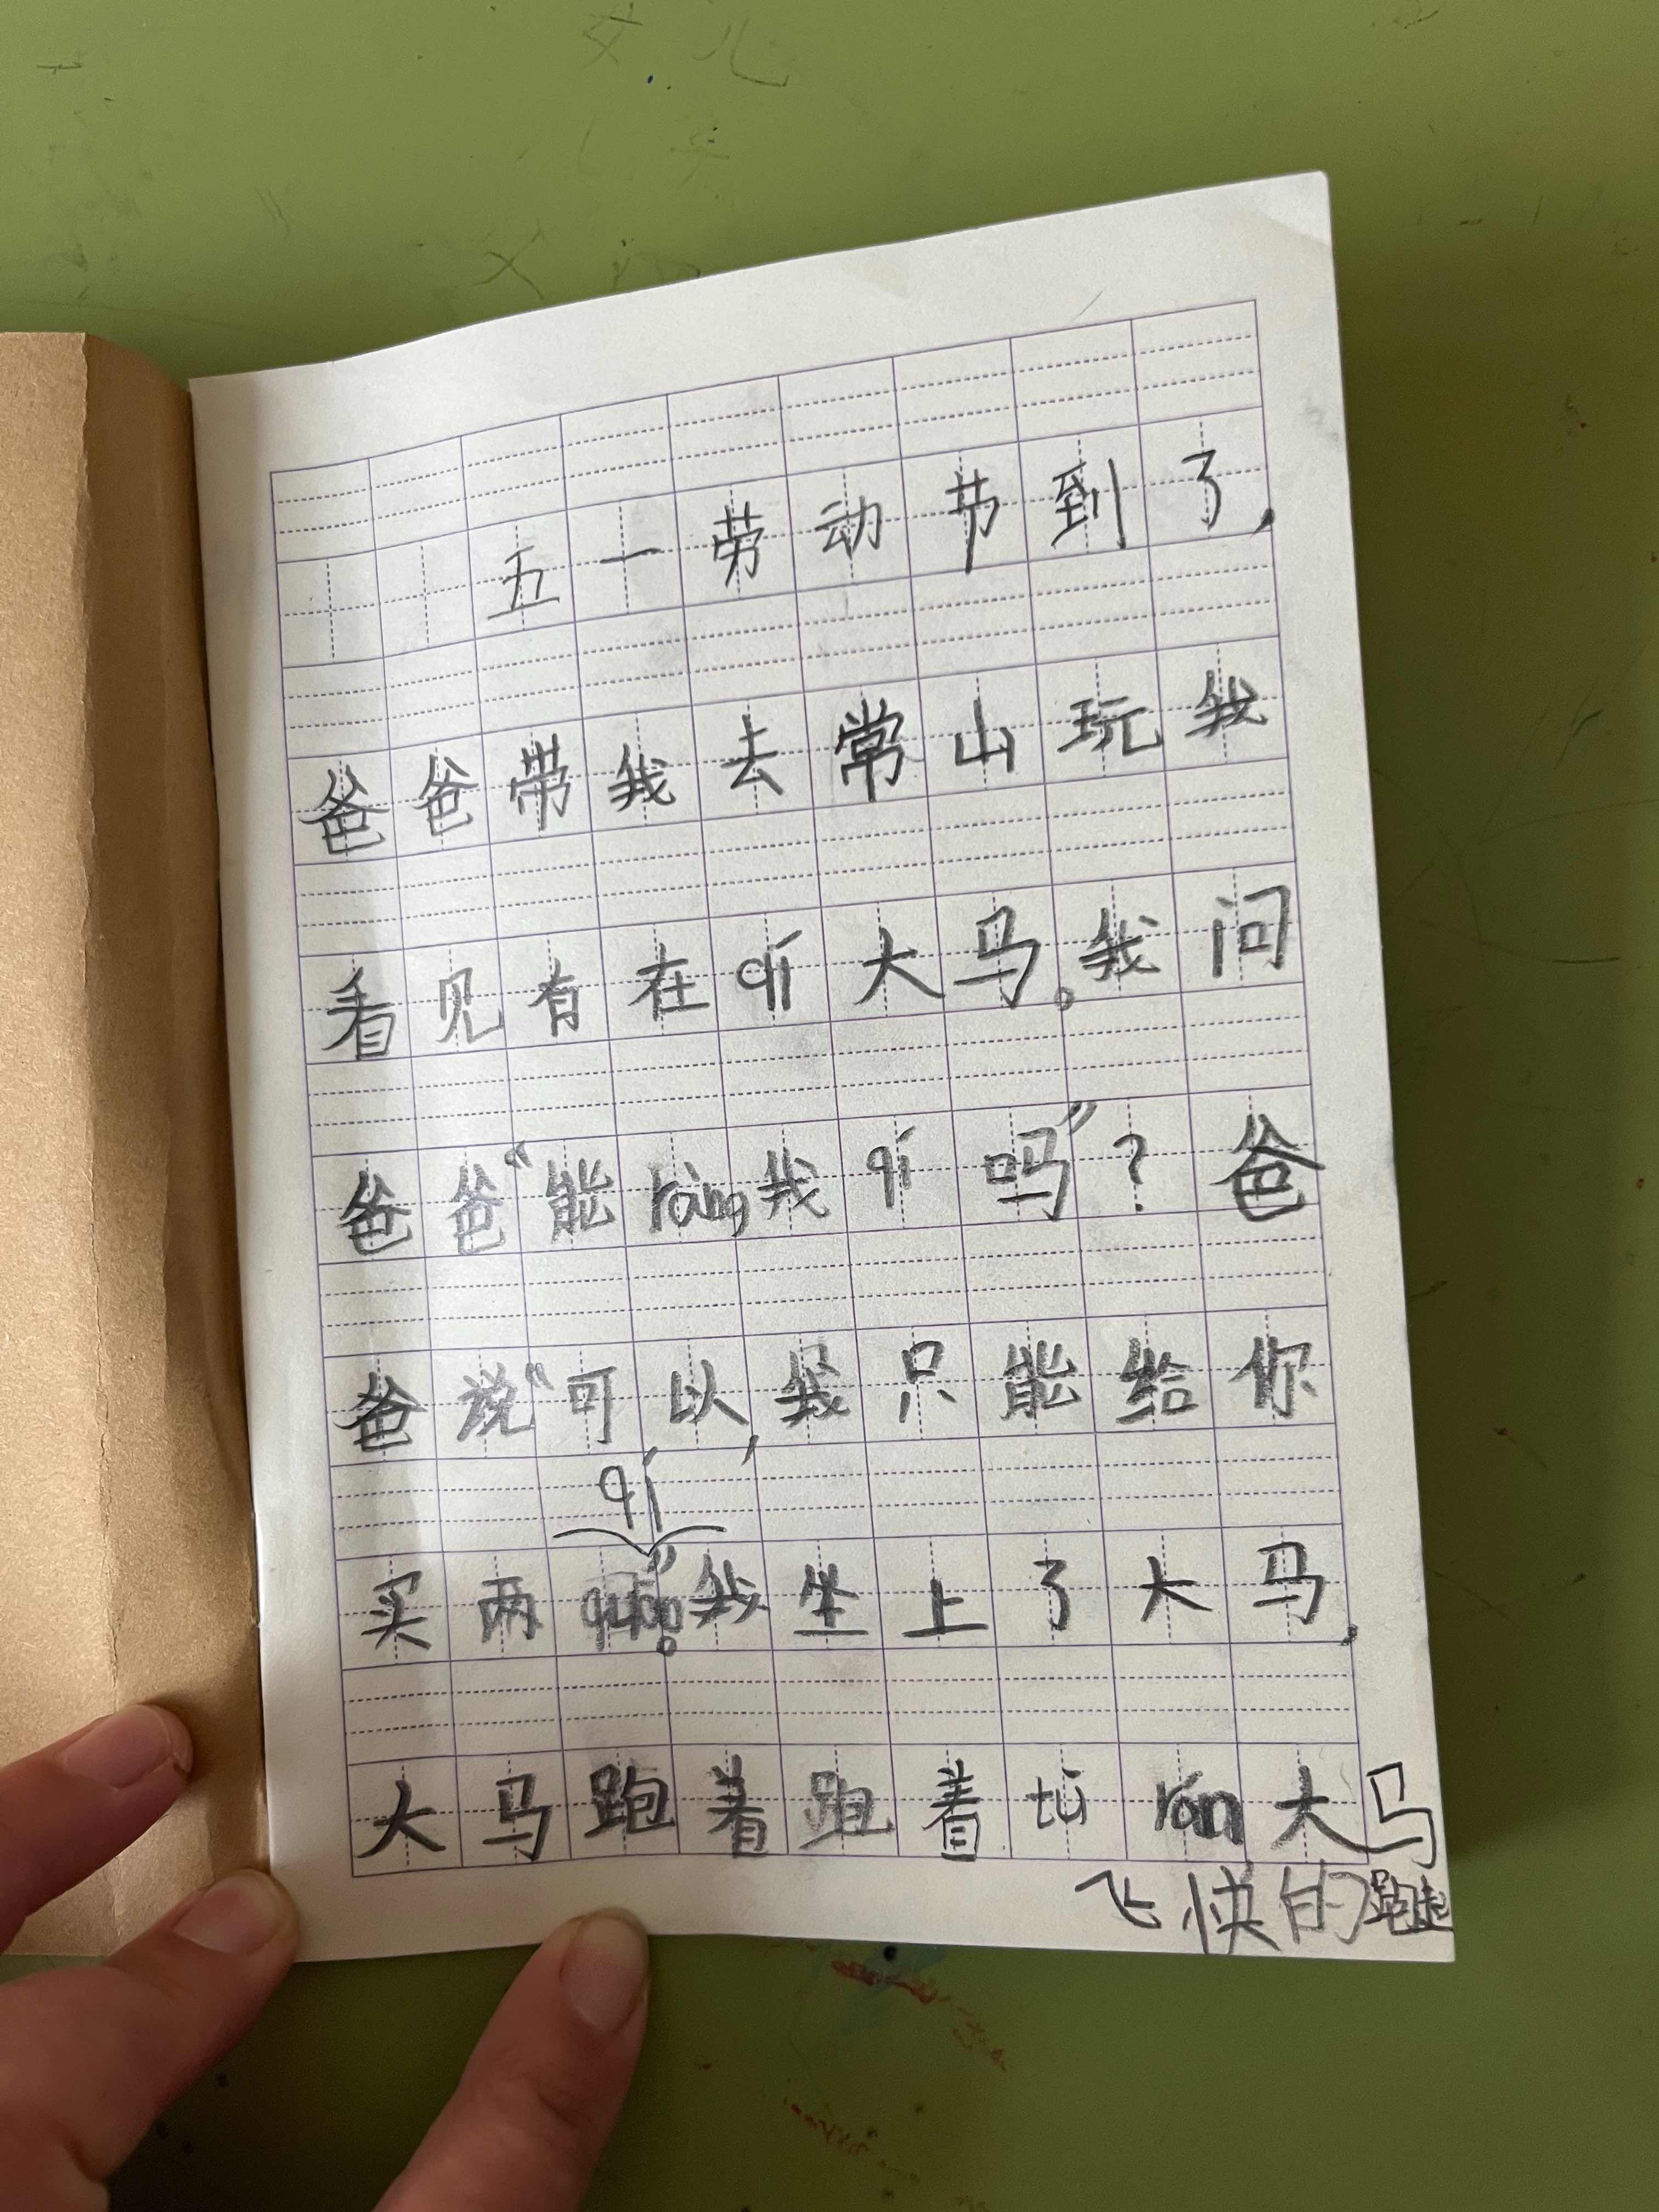 五一劳动节到了，
爸爸带我去常山玩我
看见有在qí大马。我问
爸爸“能ràng我qí吗”？爸
爸说“可以，我只能给你
qí
买两quān”。我坐上了大马，
大马跑着跑着tū rán大马
飞快的跑起